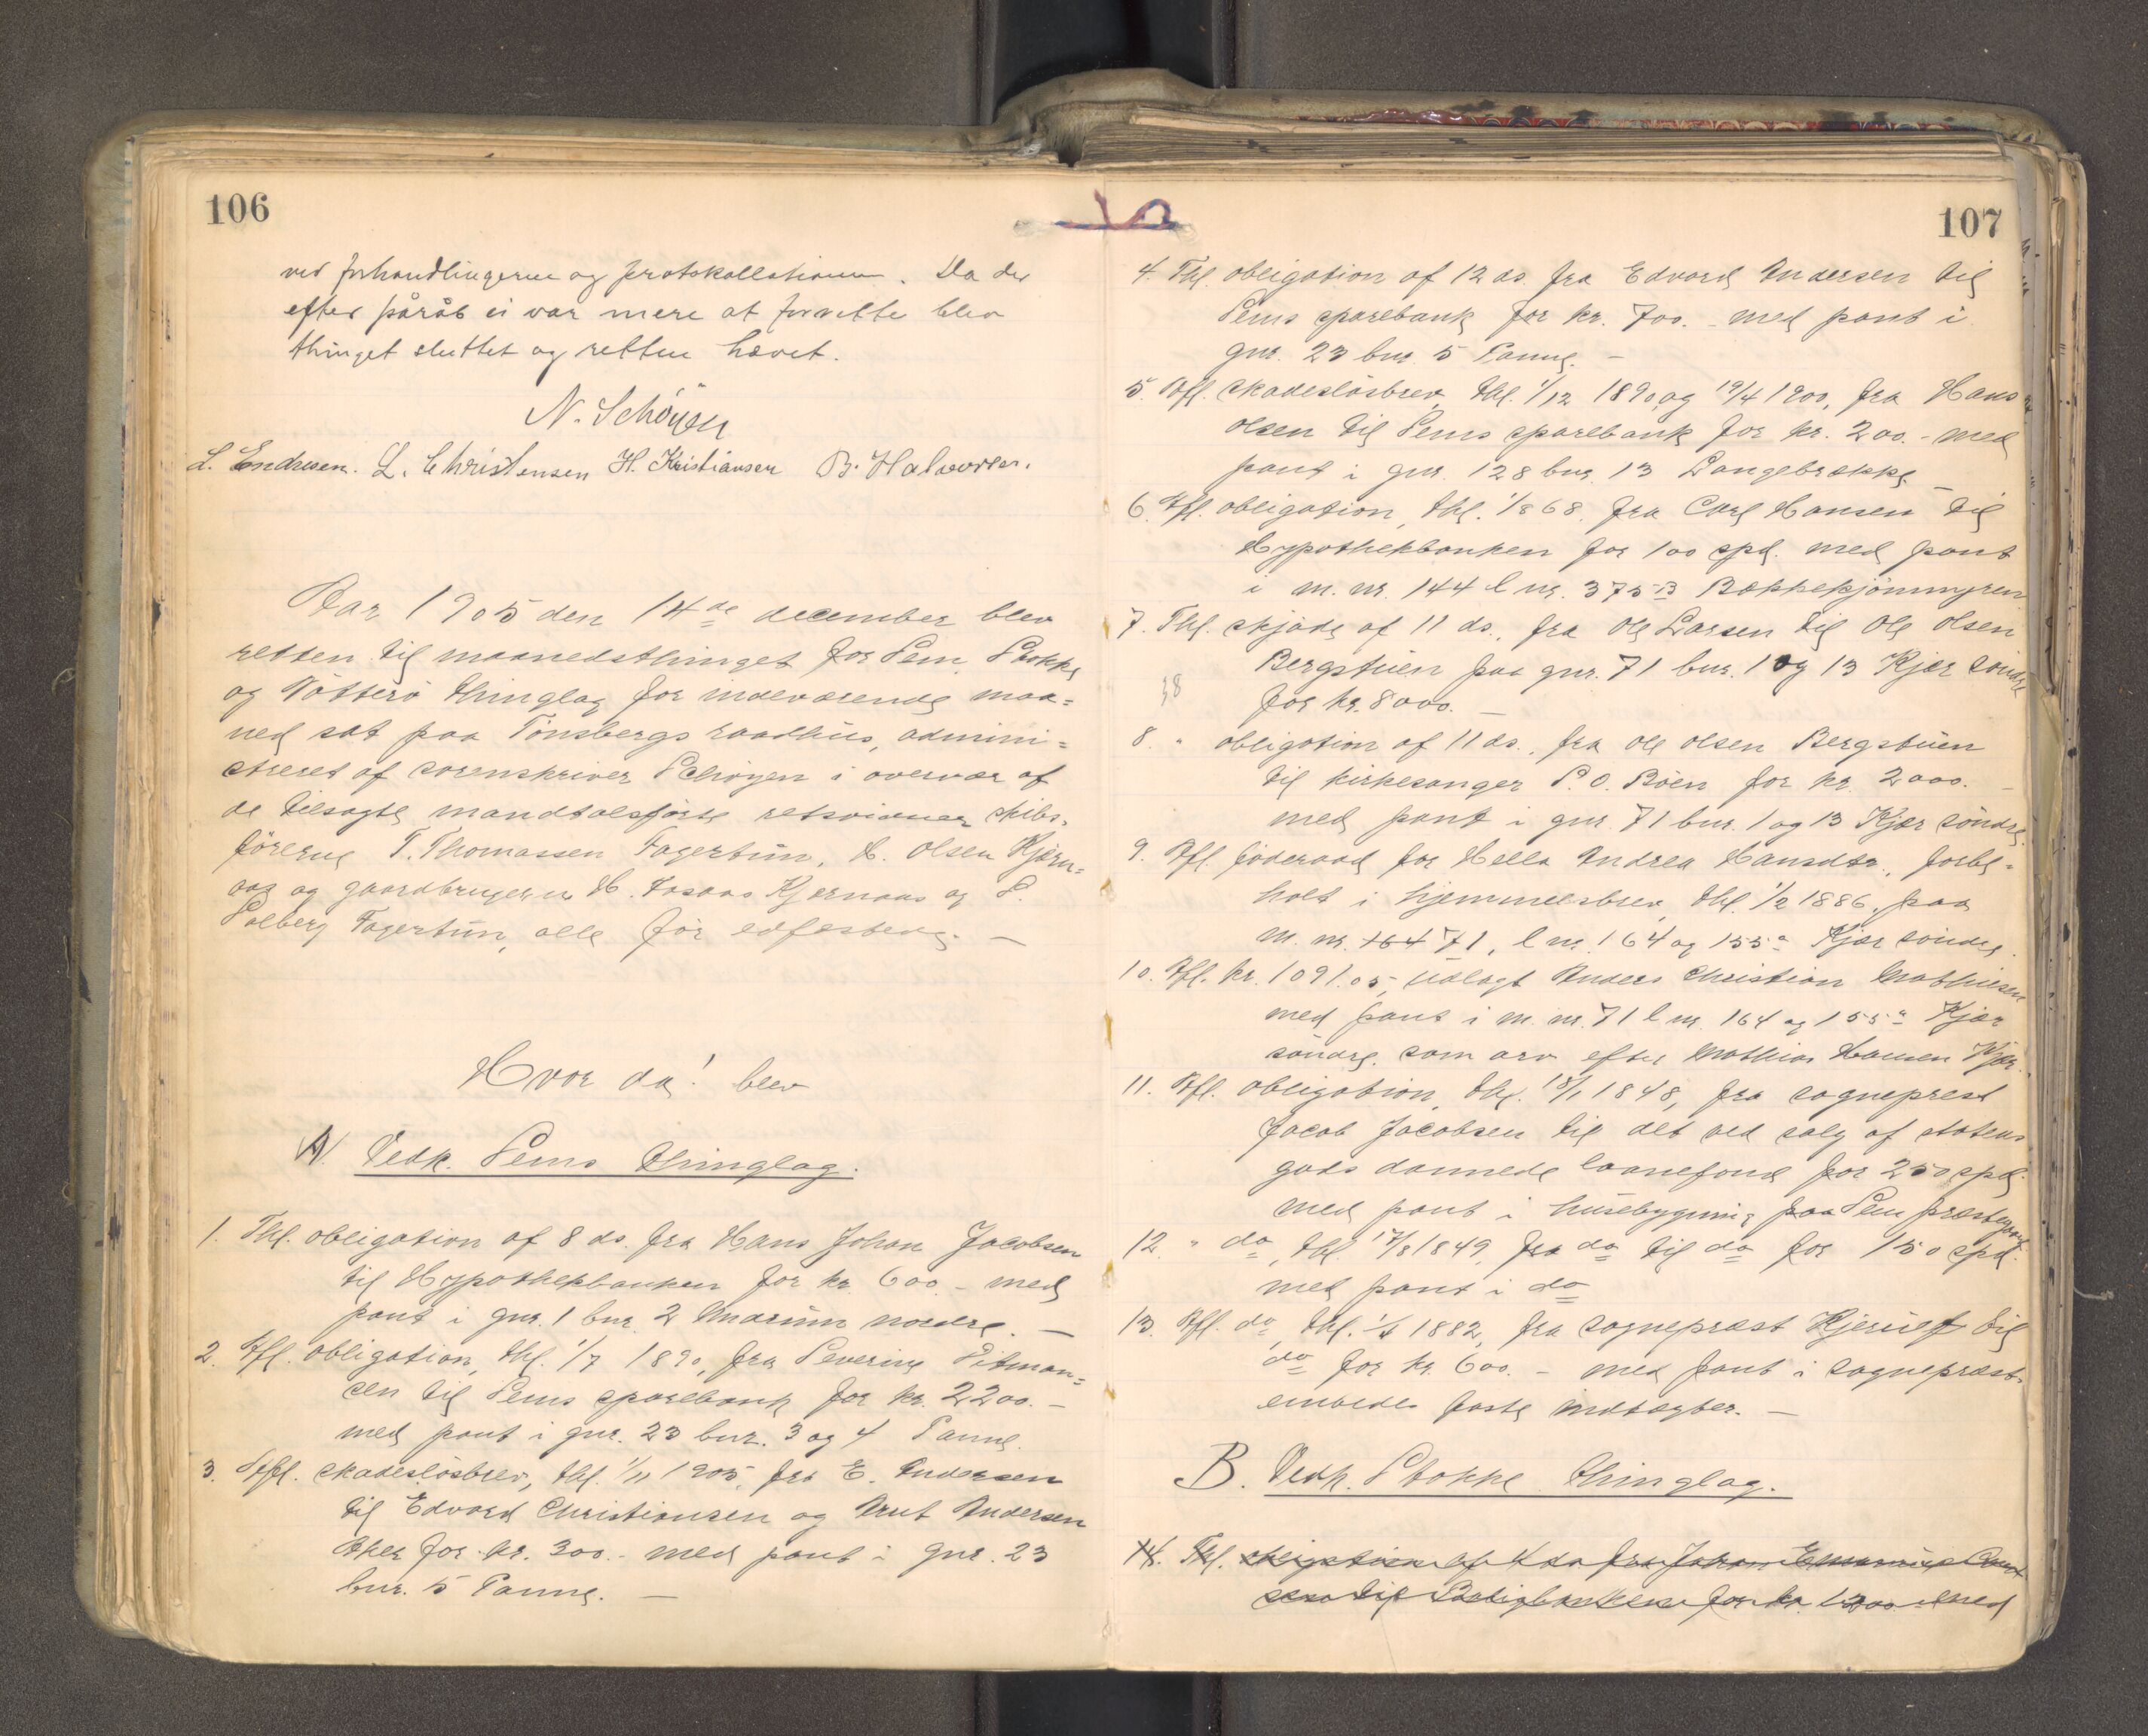 106
ved forhandlingerne og protokollationen. Da der
efter påråb ei var mere at forrette blev
thinget sluttet og retten hævet.
N. Schöyen
L. Endresen. L. Christensen H. Kristiansen B. Halvorsen.
Aar 1905 den 14de december blev
retten til maanedsthinget for Sem, Stokke
og Nøtterø thinglag for indeværende maa=
ned sat paa Tönsbergs raadhus, admini=
streret af sorenskriver Schöyen i overvær af
de tilsagte mandtalsførte retsvidner skibs=
førerne T. Thomassen Fagertun, H. Olsen Kjærn=
aas og gaardbrugerne H. Kjernaas og S.
Solberg Fagertun, alle før edfæstede. —
Hvor da! blev
A. Vedk. Sems thinglag.
1. Thl. obligation af 8 ds. fra Hans Johan Jacobsen
til Hypothekbanken for kr. 600.– med
pant i gnr. 1 bnr. 2 Unarum nordre. —
2. Afl. obligation, thl. 1/7 1890, fra Severine Sitman=
sen til Sems sparebank for kr. 2200.–
med pant i gnr. 23 bnr. 3 og 4 Tanne.
3. Afl. skadesløsbrev, thl. 1/11 1905, fra E. Andersen
til Edvard Christiansen og Knut Andersen
Aker for kr. 300.– med pant i gnr. 23
bnr. 5 Tanne. —
107
4. Thl. obligation af 12 ds. fra Edvard Andersen til
Sems sparebank for kr. 700.– med pant i
gnr. 23 bnr. 5 Tanne. –
5. Afl. skadesløsbrev, thl. 1/12 1890 og 19/4 1900, fra Hans
Olsen til Sems sparebank for kr. 200.– med
pant i gnr. 128 bnr. 13 Langebrække. –
6. Afl. obligation, thl. 1/8 68, fra Carl Hansen til
Hypothekbanken for 100 spd. med pant
i m. nr. 144 l nr. 375 B Bækkekjönnmyren
7. Thl. skjøde af 11 ds., fra Ole Larsen til Ole Olsen
Bergstuen paa gnr. 71 bnr. 1 og 13 Kjær söndre
38
for kr. 8000. —
8. " obligation af 11 ds., fra Ole Olsen Bergstuen
til kirkesanger P. O. Böen for kr. 2000. –
med pant i gnr. 71 bnr. 1 og 13 Kjær söndre.
9. Afl. føderaad for Helle Andrea Hansdtr., forbe=
holt i hjemmelsbrev, thl. 1/2 1886, paa
m. nr. 164 71, l nr. 164 og 155a Kjær söndre.
10. Afl. kr. 1091.05, udlagt Anders Christian Mathisen
med pant i m. nr. 71 l nr. 164 og 155a Kjær
söndre. som arv efter Mathias Hansen Kjær.
11. Afl. obligation, thl. 18/1 1848, fra sogneprest
Jacob Jacobsen til det ved salg af statens
gods dannede laanefond for 250 spd.
med pant i husebygning paa Sem præstegaard.
12. " do, thl. 17/8 1849, fra do til do for 150 spd.
med pant i do
13. Afl. do, thl. 1882, fra sognepræst Kjerulf til
do for kr. 600.– med pant i sogneprest=
embedes faste indtægter. —
B. Vedk. Stokke thinglag.
14. Thl. obligation af 4 ds fra Johan
til for kr. 1200 – med